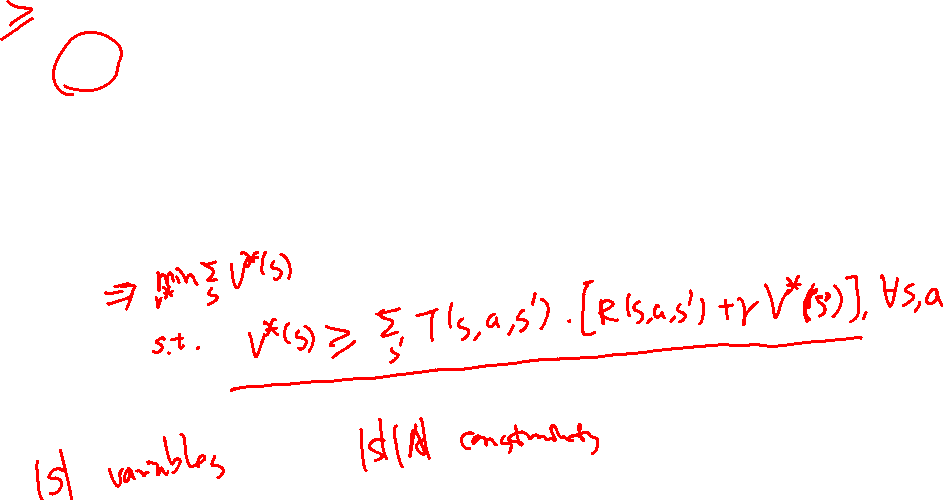 ≥
⇒ min_{V*} Σ_s V*(s)
s.t. V*(s) ≥ Σ_{s'} T(s,a,s') · [R(s,a,s') + γ V*(s')], ∀s,a
|S| variables |S||A| constraints